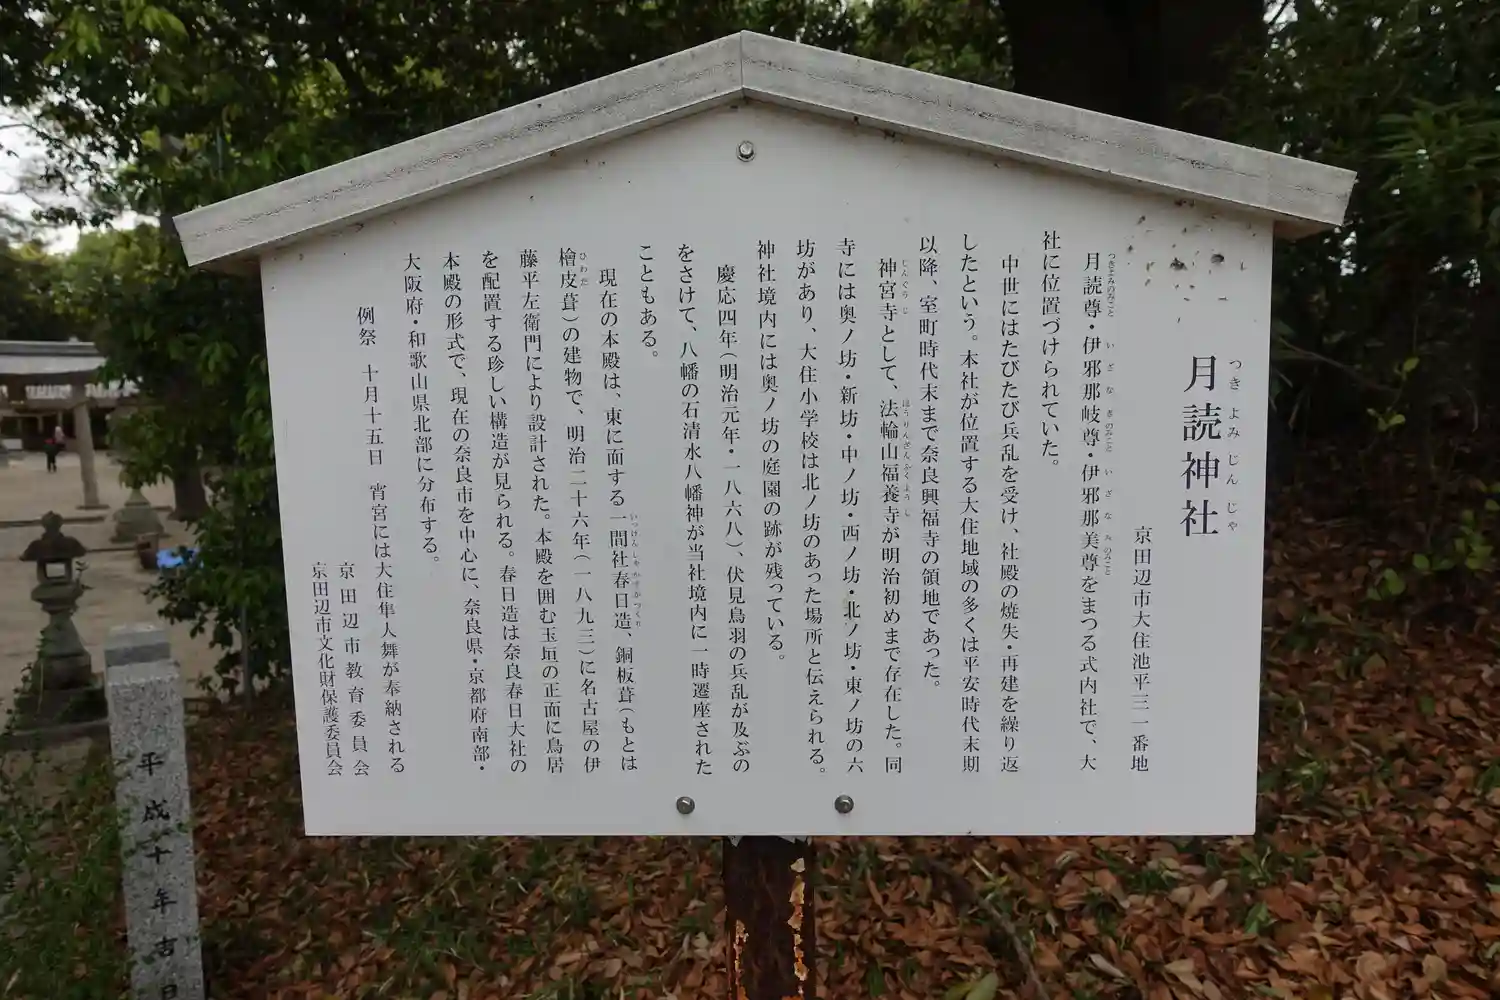 月読神社
つきよみじんじゃ
京田辺市大住池平三一番地
月読尊・伊邪那岐尊・伊邪那美尊をまつる式内社で、大
つきよみのみこと いざなぎのみこと いざなみのみこと
社に位置づけられていた。
中世にはたびたび兵乱を受け、社殿の焼失・再建を繰り返
したという。本社が位置する大住地域の多くは平安時代末期
以降、室町時代末まで奈良興福寺の領地であった。
神宮寺として、法輪山福養寺が明治初めまで存在した。同
じんぐうじ ほうりんざんふくようじ
寺には奥ノ坊・新坊・中ノ坊・西ノ坊・北ノ坊・東ノ坊の六
坊があり、大住小学校は北ノ坊のあった場所と伝えられる。
神社境内には奥ノ坊の庭園の跡が残っている。
慶応四年（明治元年・一八六八）、伏見鳥羽の兵乱が及ぶの
をさけて、八幡の石清水八幡神が当社境内に一時遷座された
こともある。
現在の本殿は、東に面する一間社春日造、銅板葺（もとは
いっけんしゃかすがづくり
檜皮葺）の建物で、明治二十六年（一八九三）に名古屋の伊
ひわだ
藤平左衛門により設計された。本殿を囲む玉垣の正面に鳥居
を配置する珍しい構造が見られる。春日造は奈良春日大社の
本殿の形式で、現在の奈良市を中心に、奈良県・京都府南部・
大阪府・和歌山県北部に分布する。
例祭 十月十五日 宵宮には大住隼人舞が奉納される
京田辺市教育委員会
京田辺市文化財保護委員会
平成十年吉日